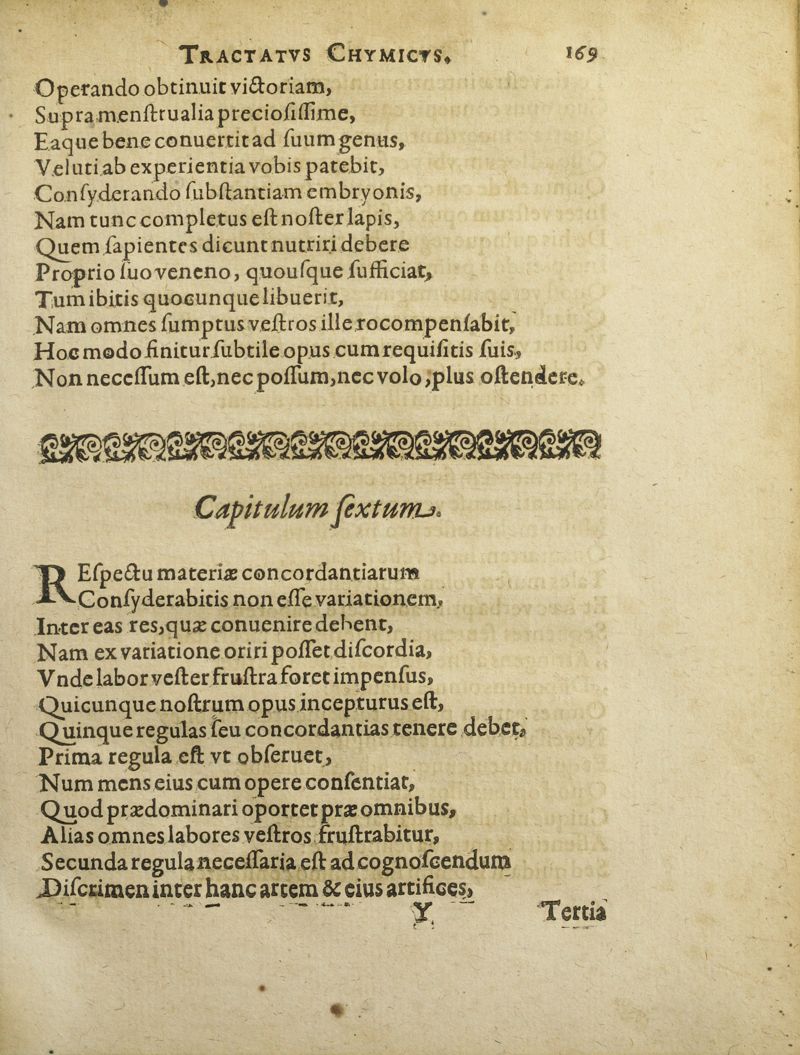 TRACTATVS CHYMICVS. 169
Operando obtinuit victoriam,
Supra menſtrualia precioſiſſime,
Eaque bene conuertit ad ſuum genus,
Veluti ab experientia vobis patebit,
Conſyderando ſubſtantiam embryonis,
Nam tunc completus eſt noſter lapis,
Quem ſapientes dicunt nutriri debere
Proprio ſuo veneno, quouſque ſufficiat,
Tum ibitis quocunque libuerit,
Nam omnes ſumptus veſtros ille rocompenſabit,
Hoc modo finitur ſubtile opus cum requiſitis ſuis,
Non neceſſum eſt, nec poſſum, nec volo, plus oſtendere.
Capitulum ſextum.
REſpectu materiæ concordantiarum
Conſyderabitis non eſſe variationem,
Inter eas res, quæ conuenire debent,
Nam ex variatione oriri poſſet diſcordia,
Vnde labor veſter fruſtra foret impenſus,
Quicunque noſtrum opus incepturus eſt,
Quinque regulas ſeu concordantias tenere debet,
Prima regula eſt vt obſeruet,
Num mens eius cum opere conſentiat,
Quod prædominari oportet præ omnibus,
Alias omnes labores veſtros fruſtrabitur,
Secunda regula neceſſaria eſt ad cognoſcendum
Diſcrimen inter hanc artem & eius artifices,
Y Tertia